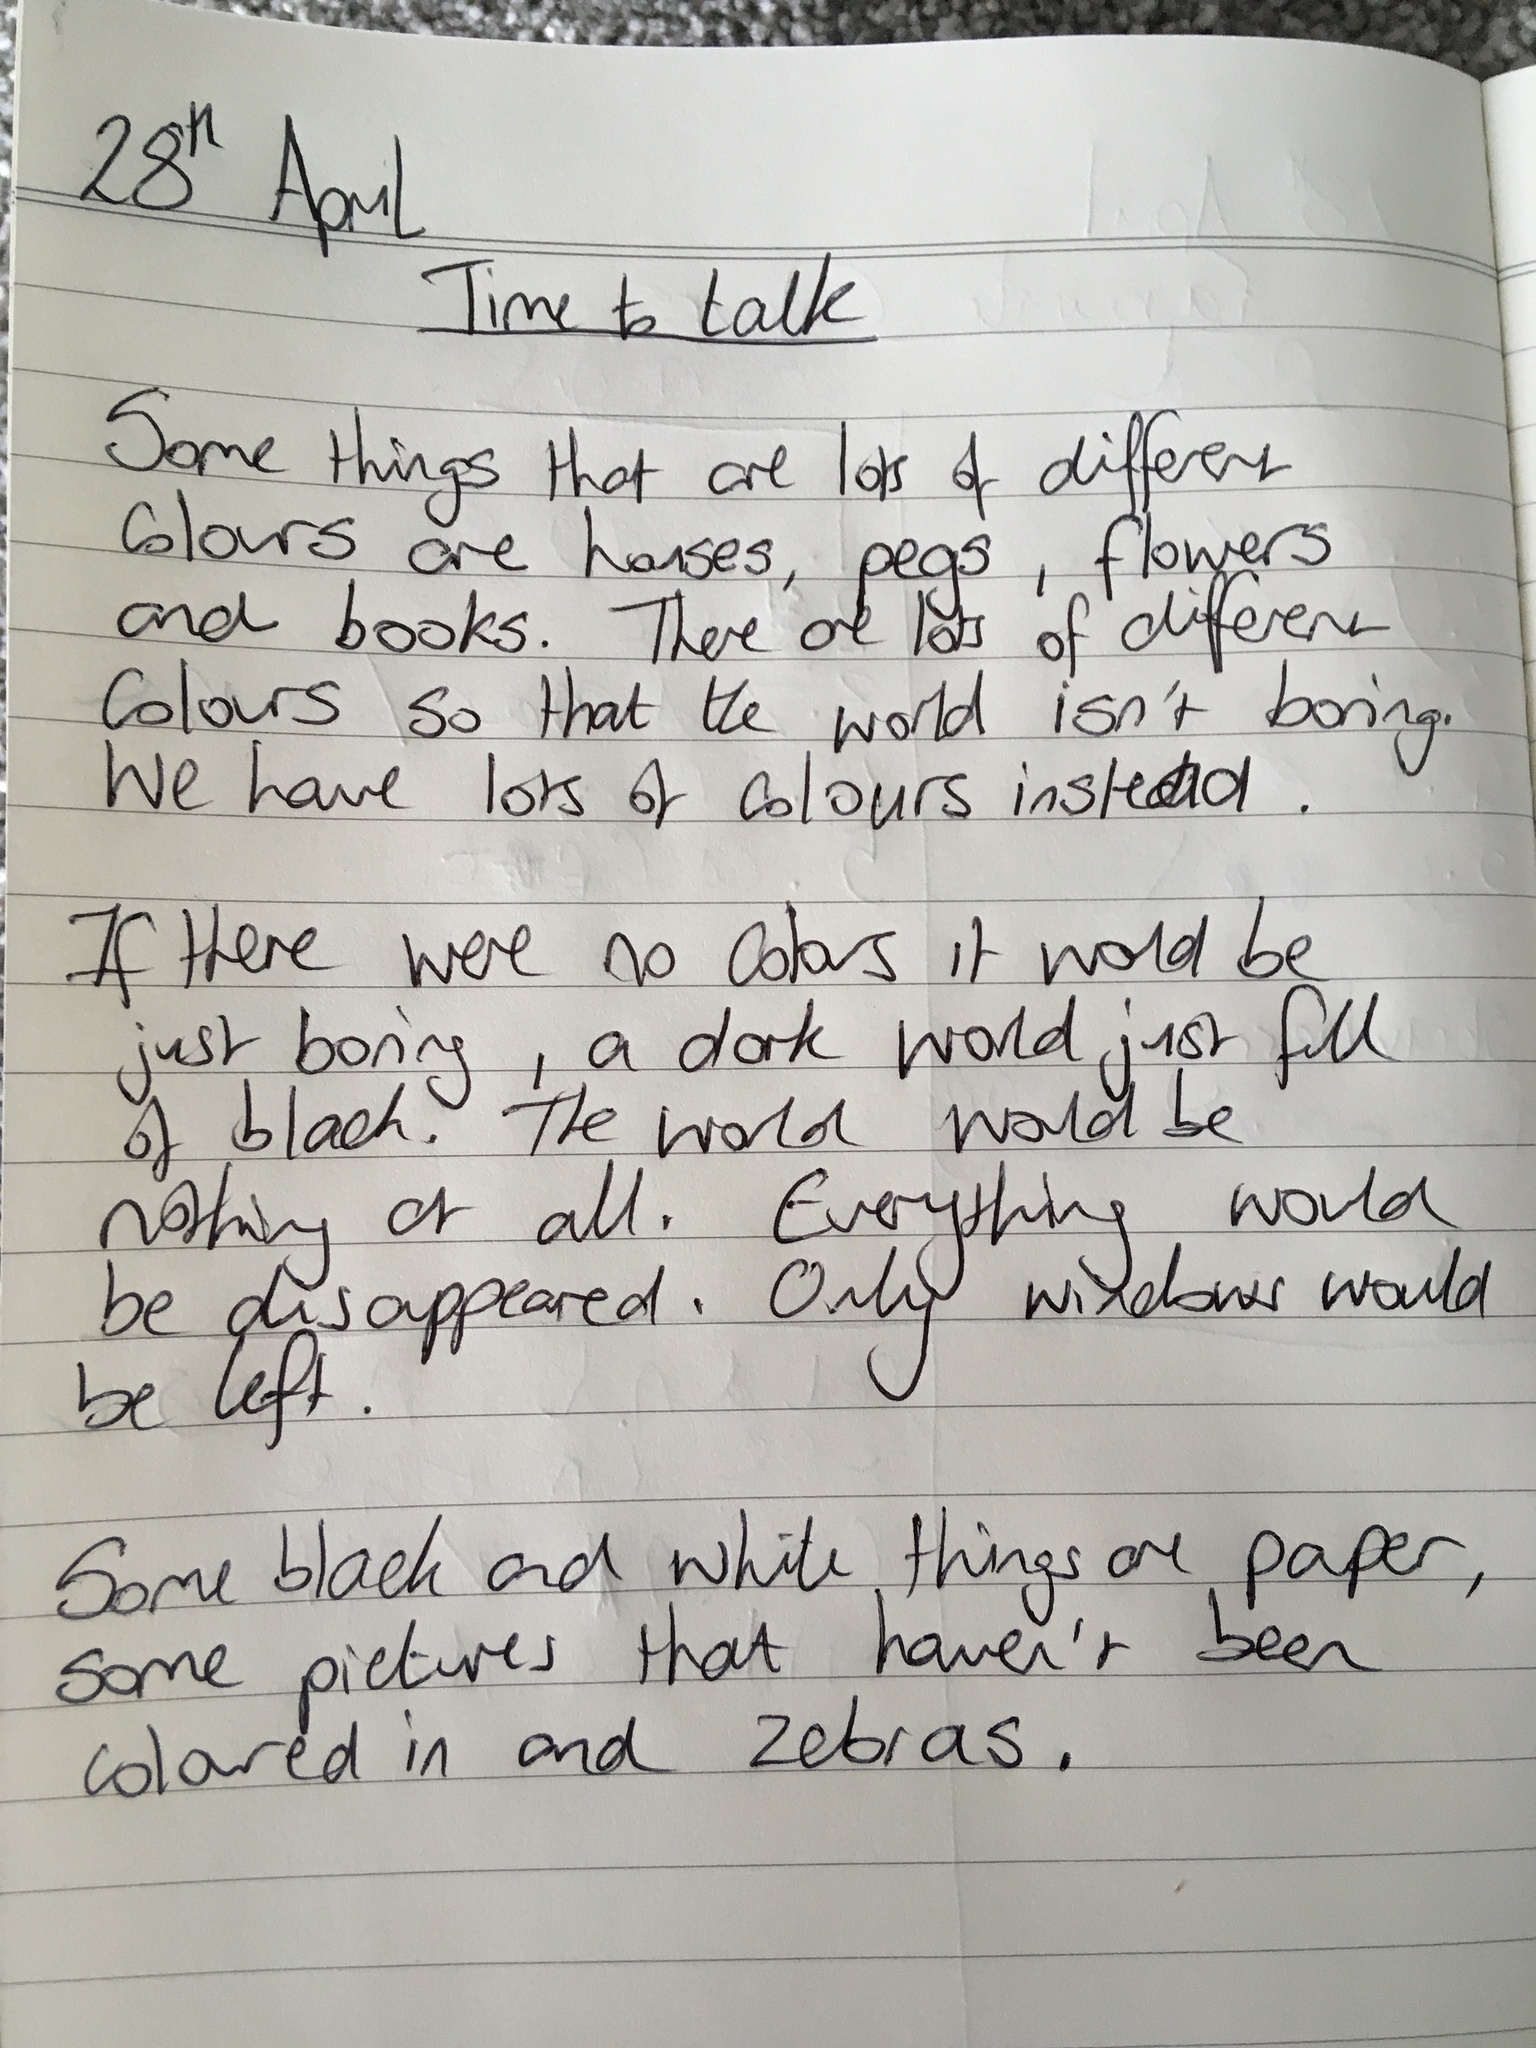 28th April
Time to talk
Some things that are lots of different
colours are houses, pegs, flowers
and books. There are lots of different
colours so that the world isn't boring.
We have lots of colours instead.
If there were no colours it would be
just boring, a dark world just full
of black. The world would be
nothing at all. Everything would
be disappeared. Only windows would
be left.
Some black and white things are paper,
some pictures that haven't been
coloured in and zebras.